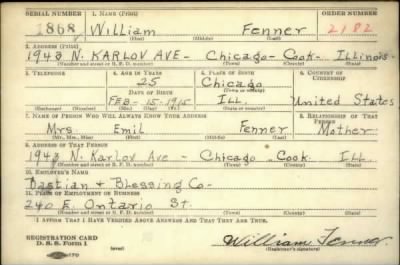 SERIAL NUMBER 1. NAME (Print) ORDER NUMBER
1868 William Fenner 2182
(First) (Middle) (Last)
2. ADDRESS (Print)
1943 N. KARLOV AVE - Chicago - Cook - Illinois
(Number and street or R. F. D. number) (Town) (County) (State)
3. TELEPHONE 4. AGE IN YEARS 5. PLACE OF BIRTH 6. COUNTRY OF CITIZENSHIP
25 Chicago
DATE OF BIRTH (Town or county)
FEB - 15 - 1915 ILL United States
(Exchange) (Number) (Mo.) (Day) (Yr.) (State or country)
7. NAME OF PERSON WHO WILL ALWAYS KNOW YOUR ADDRESS 8. RELATIONSHIP OF THAT PERSON
Mrs. Emil Fenner Mother
(Mr., Mrs., Miss) (First) (Middle) (Last)
9. ADDRESS OF THAT PERSON
1943 N. Karlov Ave - Chicago Cook Ill
(Number and street or R. F. D. number) (Town) (County) (State)
10. EMPLOYER'S NAME
Bastian & Blessing Co-
11. PLACE OF EMPLOYMENT OR BUSINESS
240 E. Ontario St.
(Number and street or R. F. D. number) (Town) (County) (State)
I AFFIRM THAT I HAVE VERIFIED ABOVE ANSWERS AND THAT THEY ARE TRUE.
REGISTRATION CARD
D. S. S. Form 1 (over) William Fenner
(Registrant's signature)